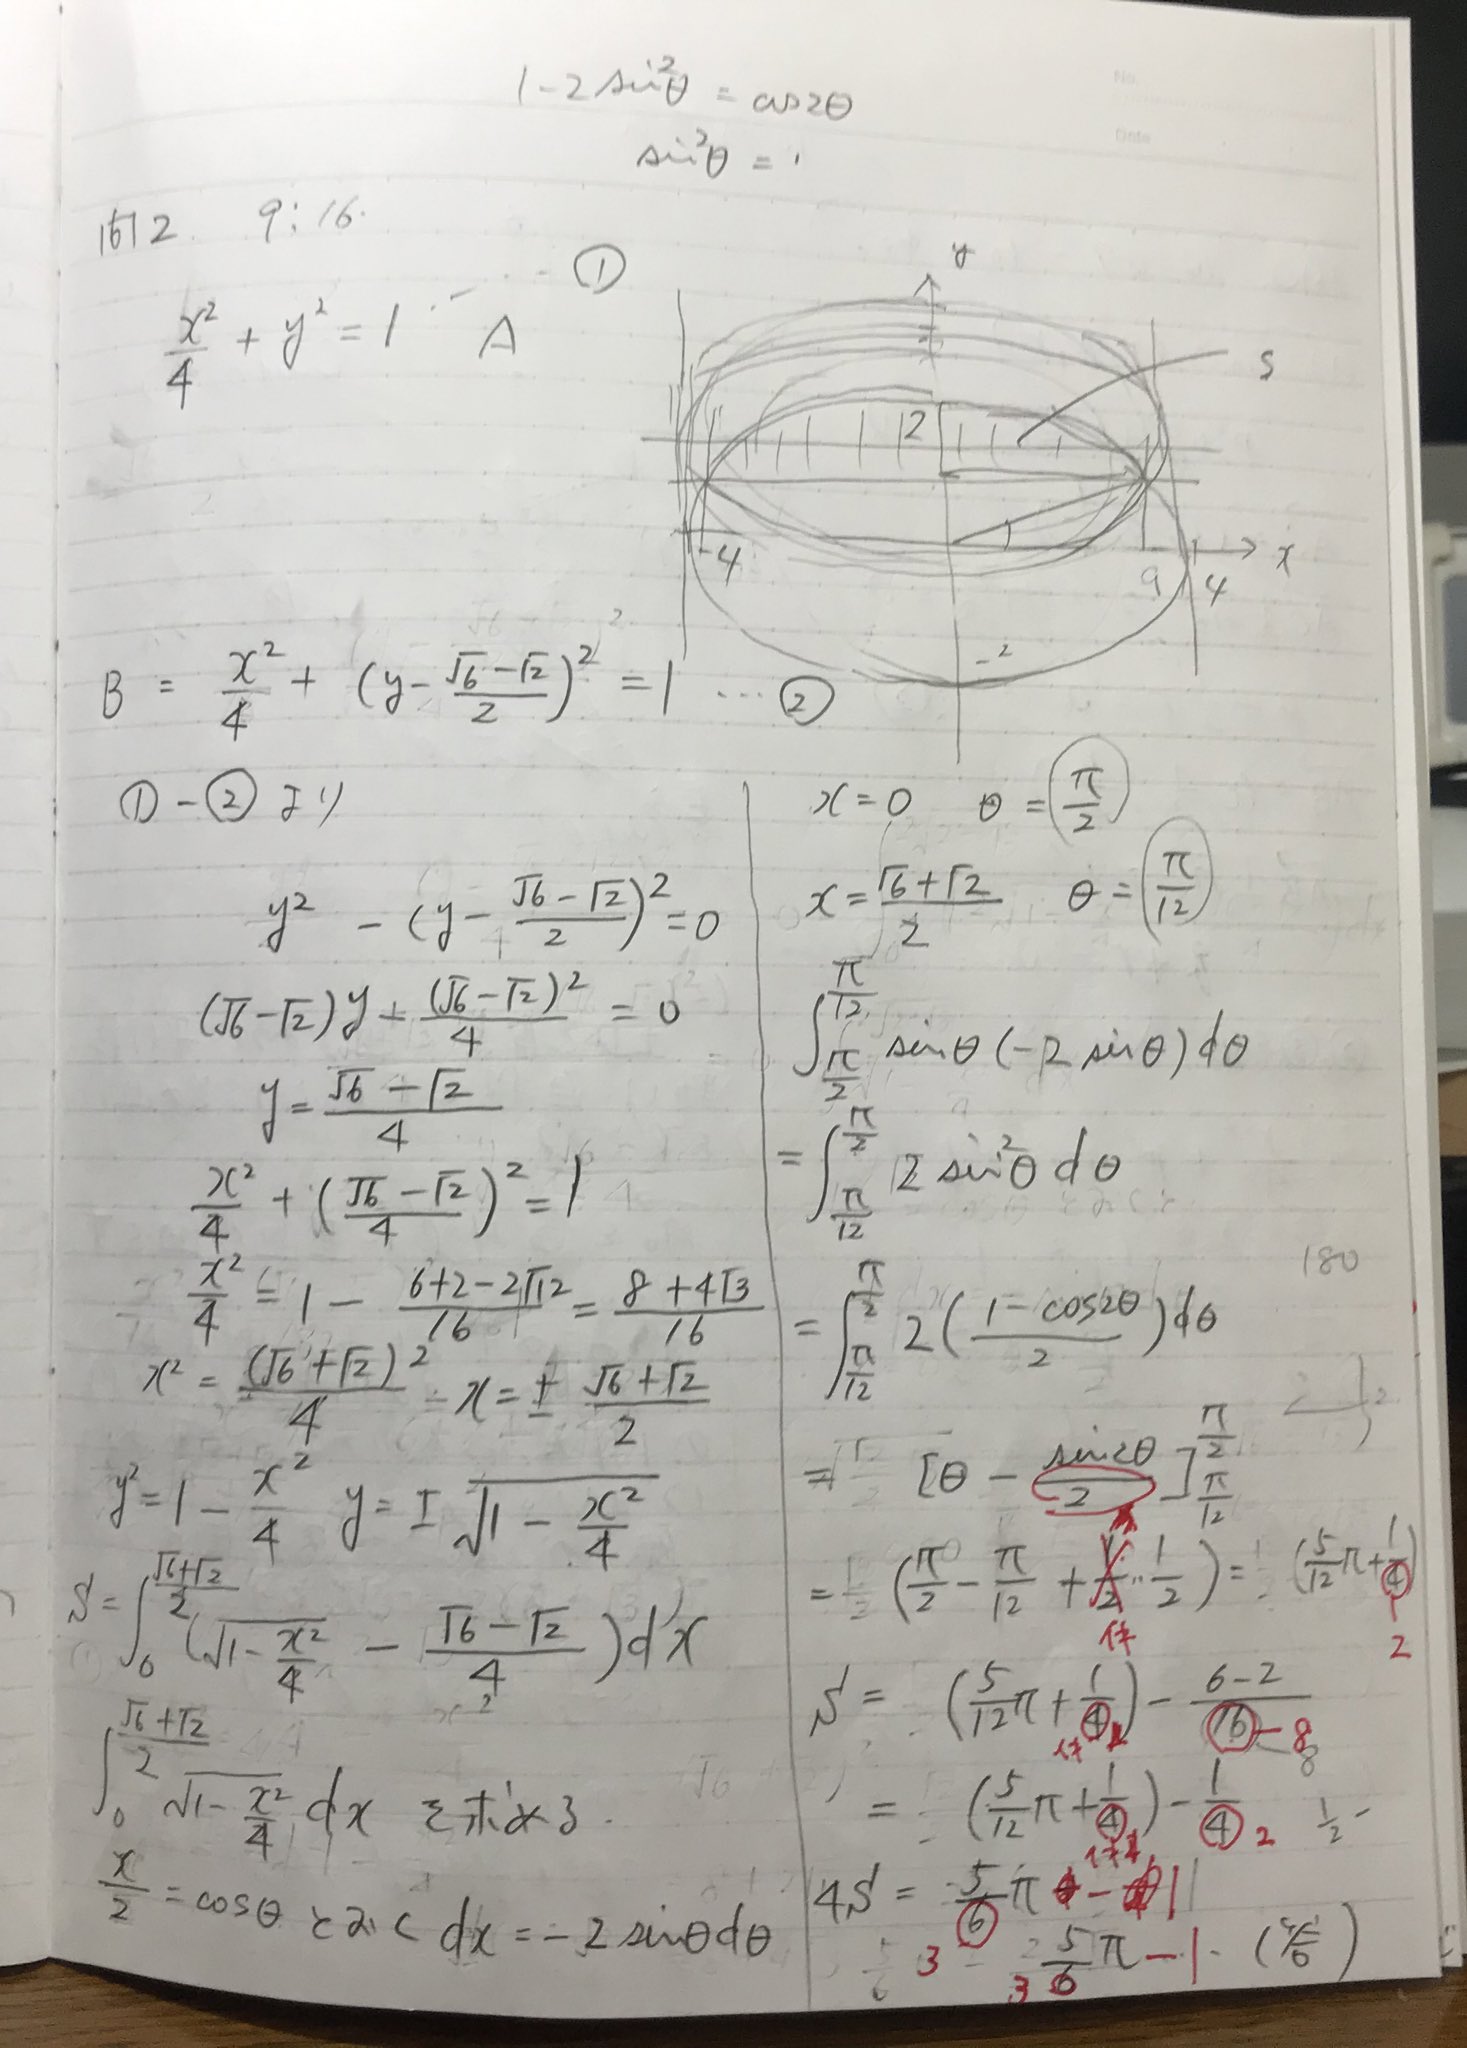 1-2sin²θ = cos2θ
sin²θ =
No.
Date
例2 9:16
x²/4 + y² = 1 … A ①
y
S
2
-4
4
x
-2
B = x²/4 + (y - (√6-√2)/2)² = 1 … ②
① - ② より
y² - (y - (√6-√2)/2)² = 0
(√6-√2)y + (√6-√2)²/4 = 0
y = (√6-√2)/4
x²/4 + ((√6-√2)/4)² = 1
x²/4 = 1 - (6+2-2√12)/16 = (8+4√3)/16
x² = (√6+√2)²/4 x = ± (√6+√2)/2
y² = 1 - x²/4 y = ±√(1 - x²/4)
S = ∫_0^{(√6+√2)/2} (√(1 - x²/4) - (√6-√2)/4) dx
∫_0^{(√6+√2)/2} √(1 - x²/4) dx を求める.
x/2 = cosθ とおく dx = -2sinθdθ
x = 0 θ = π/2
x = (√6+√2)/2 θ = π/12
∫_{π/2}^{π/12} sinθ(-2sinθ)dθ
= ∫_{π/12}^{π/2} 2sin²θdθ
180
= ∫_{π/12}^{π/2} 2((1-cos2θ)/2)dθ
= [θ - sin2θ/2]_{π/12}^{π/2}
= (π/2 - π/12 + 1/2·1/2) = (5/12π + 1/4)
2
S = (5/12π + 1/4) - (6-2)/16 - 8
8
= (5/12π + 1/4) - 1/4 2 1/2 -
4S = 5/6π - 1
3
5/6π - 1
3